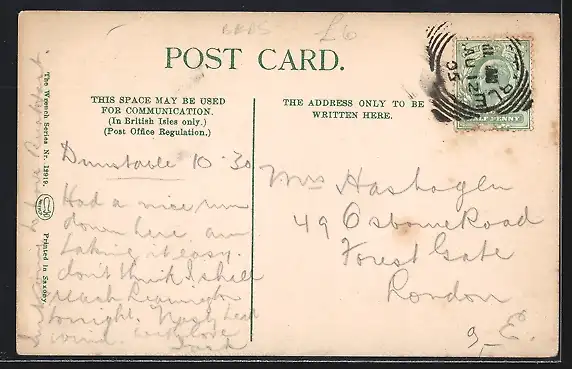 BEDS £6
POST CARD.
THIS SPACE MAY BE USED
FOR COMMUNICATION.
(In British Isles only.)
(Post Office Regulation.)
THE ADDRESS ONLY TO BE
WRITTEN HERE.
HALF PENNY
AU 12
05
The Wrench Series Nr. 12919.
Printed in Saxony.
Dunstable 10.30
Had a nice run
down here am
taking it easy.
don't think I shall
reach Leamington
tonight. Nasty head
wind. with love
Jack
Mrs Hashagen
49 Osborne Road
Forest Gate
London
E.